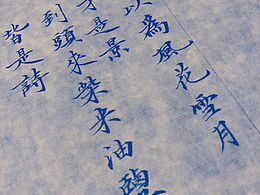 以為風花雪月
才是景
到頭來柴米油鹽
皆是詩